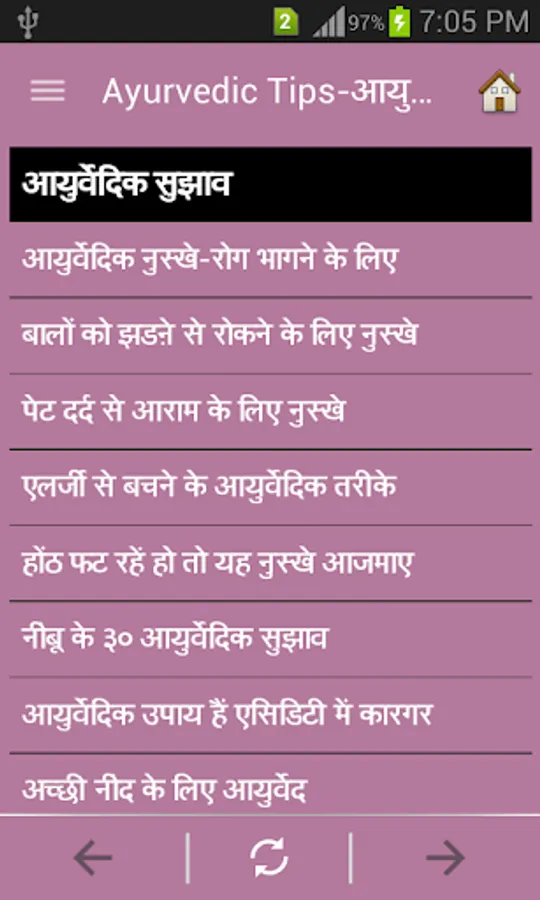 2 97% 7:05 PM
Ayurvedic Tips-आयु...
आयुर्वेदिक सुझाव
आयुर्वेदिक नुस्खे-रोग भागने के लिए
बालों को झडऩे से रोकने के लिए नुस्खे
पेट दर्द से आराम के लिए नुस्खे
एलर्जी से बचने के आयुर्वेदिक तरीके
होंठ फट रहें हो तो यह नुस्खे आजमाए
नीबू के ३० आयुर्वेदिक सुझाव
आयुर्वेदिक उपाय हैं एसिडिटी में कारगर
अच्छी नीद के लिए आयुर्वेद